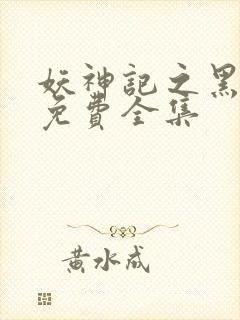 妖神記之黑
免費全集
黃水成